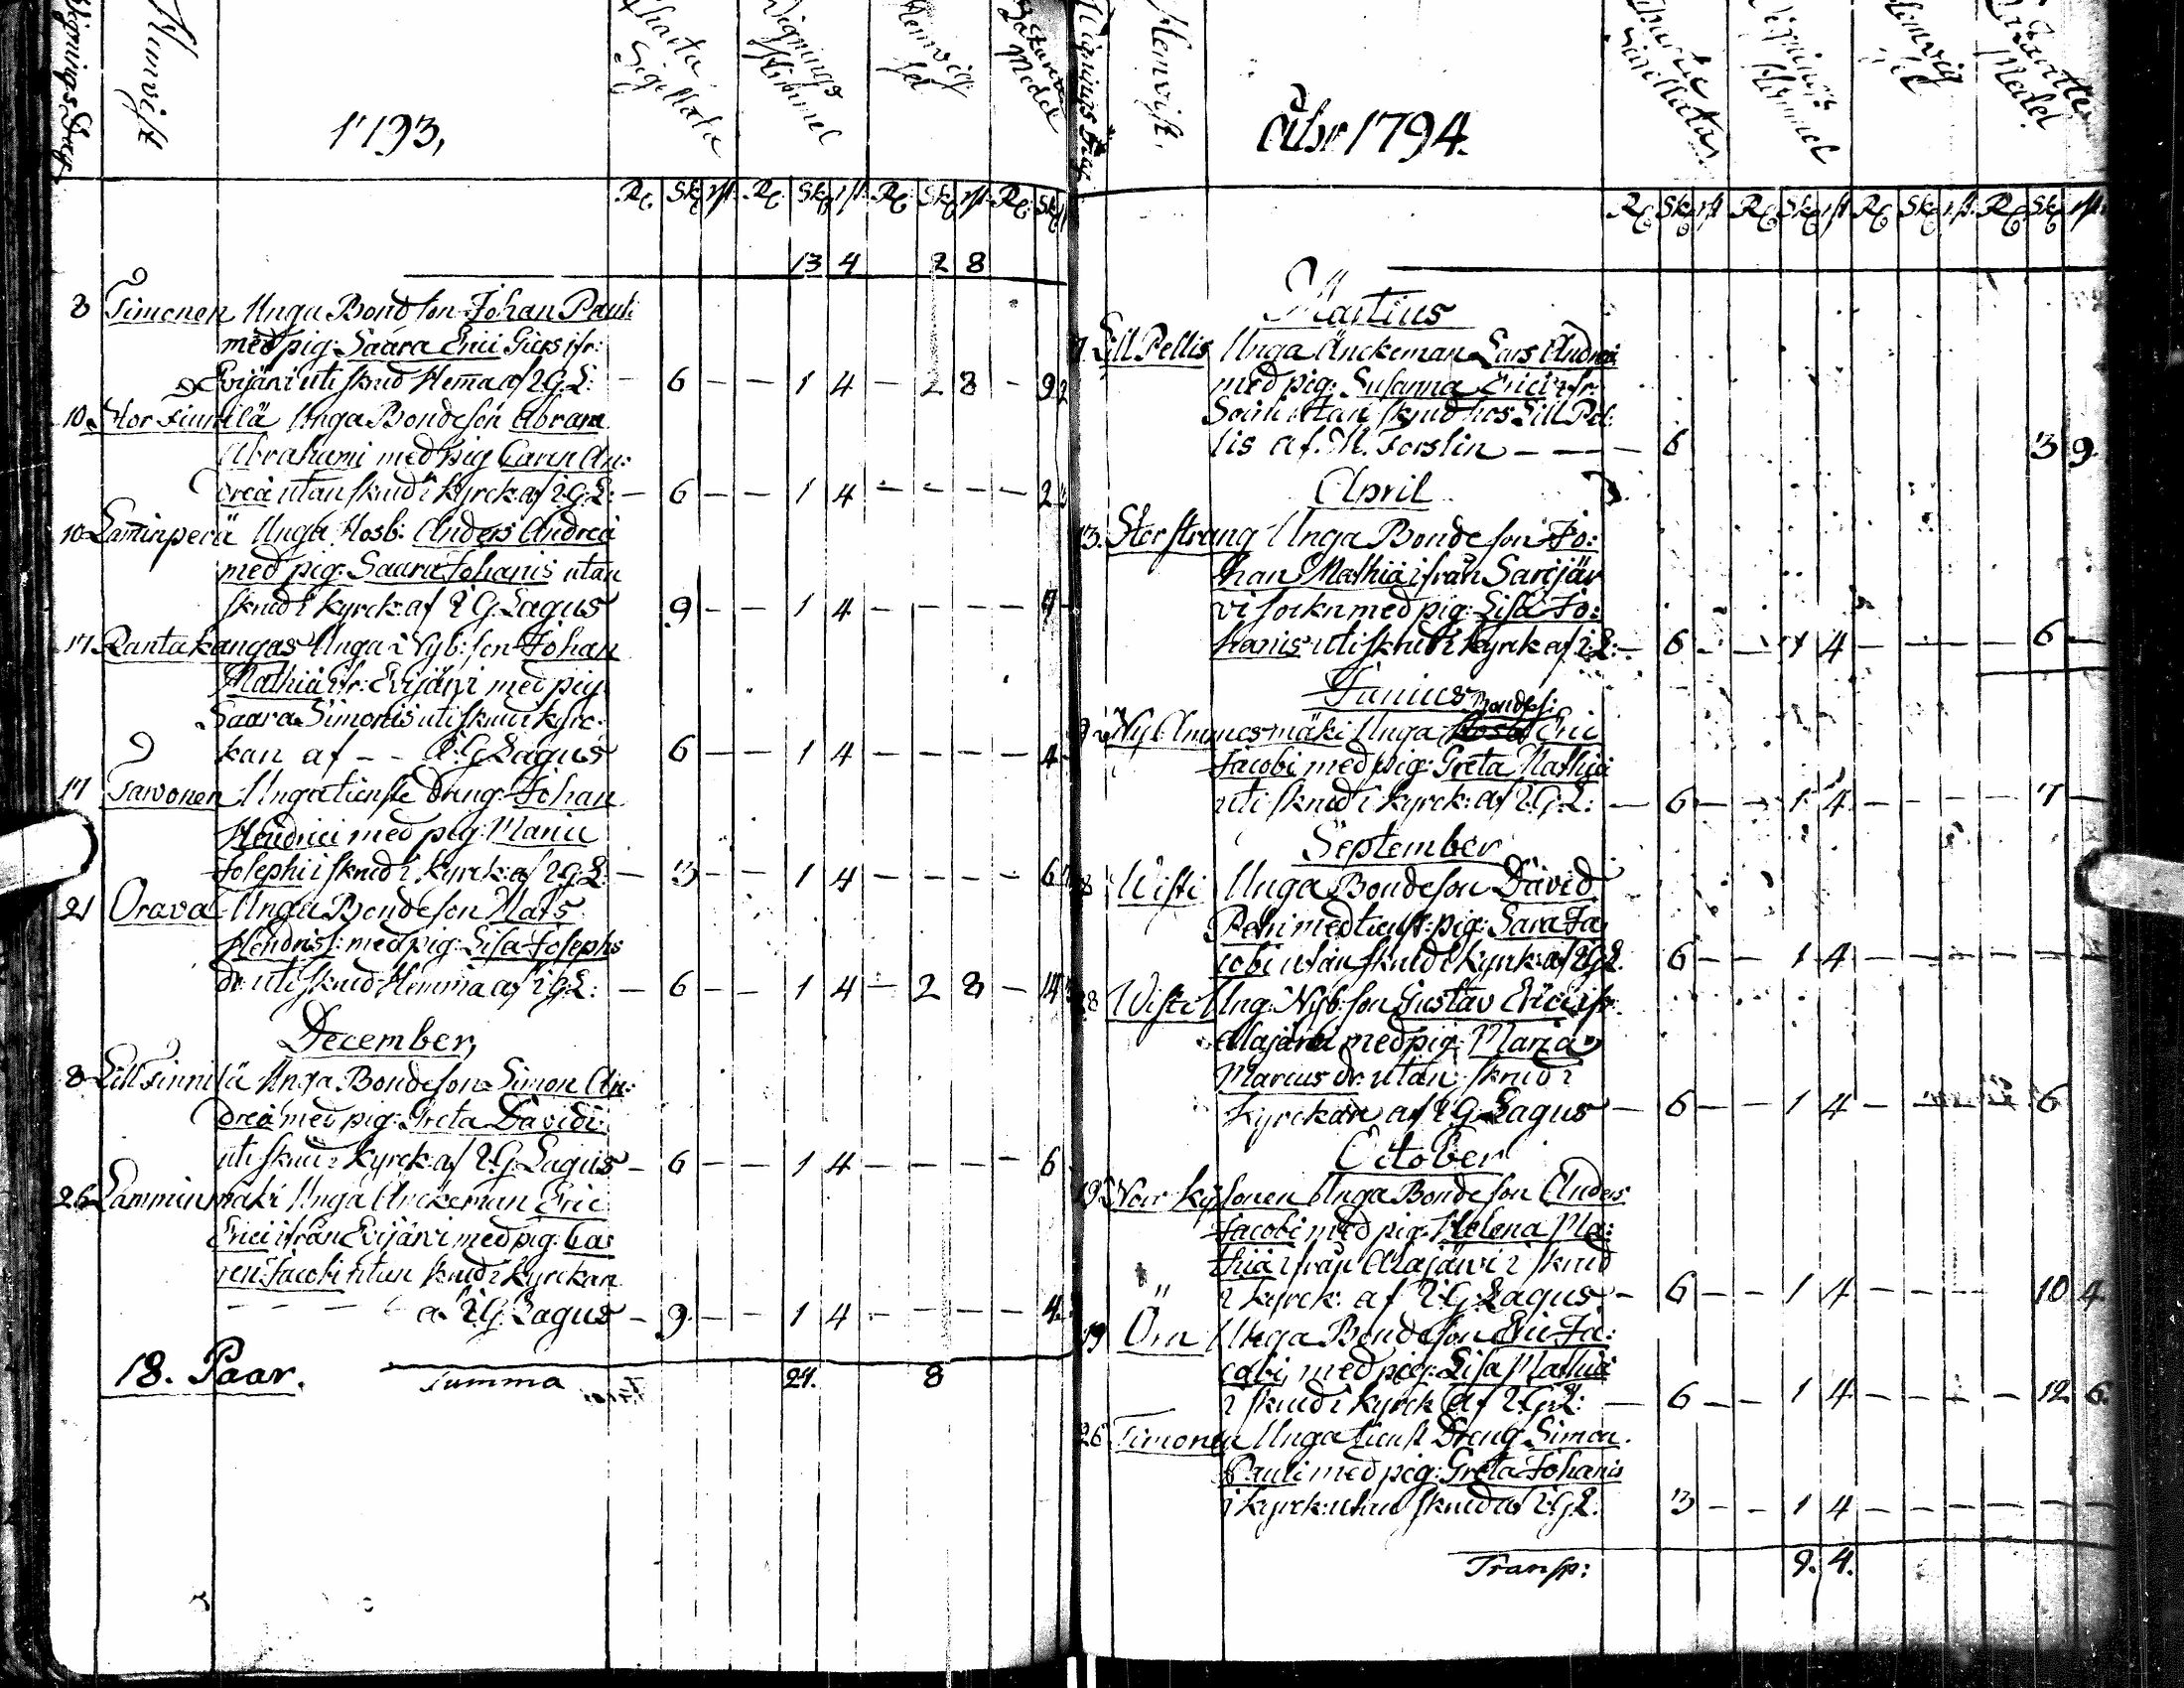 Wignings Dag
Hemvist
1793,
Charta Sigillata
Wignings Stämpel
Hemvig:
Lazaretts Medel
Rd. Sk. rst. Rd. Sk. rst. Rd. Sk. rst. Rd. Sk.
13 4 2 8
8 Timonen Unga Bond son Johan Pauli
med pig: Saara Erici ifr:
Evijärvi uti skrud Hemma af I.G.L: — 6 — — 1 4 — 2 8 — 9
10. Stor Finnilä Unga Bondeson Abram
Abrahami med pig Caren An:
dreä utan skrud i kyrck: af I.G.L: — 6 — — 1 4 — — — — 2
10 Lamminperä Unga Hosb: Anders Andreä
med pig: Saara Johanis utan
skrud i kyrck: af I.G. Lagus 9 — — 1 4 — — — —
17 Rantakangas Unga Nyb: son Johan
Mathiä ifr: Evijärvi med pig
Saara Simonis uti skrud i kyrc-
kan af — I.G. Lagus 6 — — 1 4 — — — — 4
17 Tarvonen Unga tienste dreng: Johan
Hendrici med pig: Maria
Josephi i skrud i kyrck: af I.G.L: — 3 — — 1 4 — — — — 6
21 Orava Unga Bondeson Mats
Hendriss: med pig: Lisa Josephs
dr uti skrud Hemma af I.G.L: — 6 — — 1 4 — 2 8 — 14
December,
8 Lill Finnilä Unga Bondeson Simon An:
dreä med pig: Greta Davidi
uti skrud i kyrck: af I.G. Lagus — 6 — — 1 4 — — — — 6
26 Lamminmäki Unga Änckeman Eric
Erici ifrån Evijärvi med pig: Ca:
ren Jacobi utan skrud i kyrckan
af I.G. Lagus — 9 — — 1 4 — — — — 4
18. Paar. Summa 21. 8
Wignings Dag
Hemvist.
Åhr 1794.
Charta Sigillata
Wignings Stämpel
Hemvig
Lazaretts Medel
Rd Sk rst Rd Sk rst Rd Sk rst. Rd Sk rst
Martius
Lill Pellis Unga Änckeman Lars Andreä
med pig: Susanna Erici ifr
Soini utan skrud hos Lill Pel:
lis af M. Forslin — — — 6 3 9
April
13. Storstrang Unga Bondeson Jo:
han Mathiä ifrån Sarijär
vi sockn med pig: Lisa Jo:
hanis uti skrud i kyrck af I.L: — 6 — — 1 4 — — — 6 —
Junius
Bondes:
Nyb Ammesmäki Unga Eric
Jacobi med pig: Greta Mathiä
uti skrud i kyrck: af I.G.L: — 6 — — 1 4 — — — 7 —
September
Wisti Unga Bondeson David
Petri med tienst: pig: Sara Ja
cobi utan skrud i kyrck: af I.G.L. 6 — — 1 4 — — — — —
28 Wisti Ung: Nyb: son Gustav Erici ifr.
Alajärvi med pig: Maria
Marcus dr. utan skrud i
kyrckan af I.G. Lagus — 6 — — 1 4 — — — 6
October
Unga Bondeson Anders
Jacobi med pig. Helena Ma:
thiä ifrån Alajärvi i skrud
i kyrck: af I.G. Lagus — 6 — — 1 4 — — — 10 4
19 Örn Unga Bondeson Eric Ja:
cobi, med pig: Lisa Mathiä
i skrud i kyrck af I.G.L: — 6 — — 1 4 — — — — 12 6
26 Timonen Unga tienst Dreng Simon
Pauli med pig: Greta Johanis
i kyrck: utan skrud af I.G.L. 3 — — 1 4 — — — — —
Transp: 9. 4.